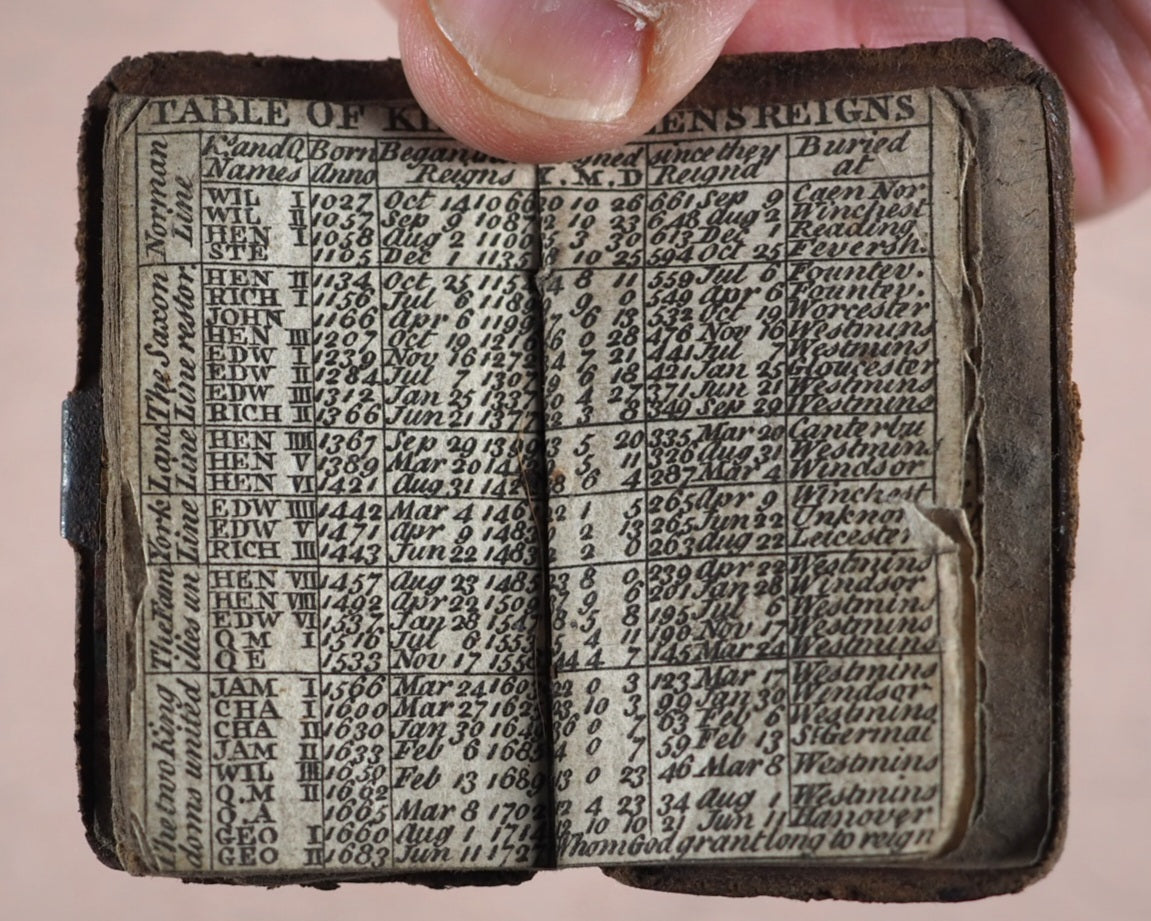 TABLE OF REIGNS
Ks and Q Born Began Reigned since they Buried
Names Anno Reigns Y. M. D Reignd at
Norman Line
WIL I 1027 Oct 14 1066 20 10 26 661 Sep 9 Caen Nor
WIL II 1057 Sep 9 108 12 10 23 648 Aug 2 Winchest
HEN I 1058 Aug 2 1100 5 3 30 613 Dec 1 Reading
STE 1105 Dec 1 1135 8 10 25 594 Oct 25 Feversh.
The Saxon Line restor
HEN II 1134 Oct 25 115 4 8 11 559 Jul 6 Fountev.
RICH I 1156 Jul 6 118 9 0 549 Apr 6 Fountev.
JOHN 1166 Apr 6 1199 7 6 13 532 Oct 19 Worcester
HEN III 1207 Oct 19 121 6 0 28 476 Nov 16 Westmins
EDW I 1239 Nov 16 1272 4 7 21 441 Jul 7 Westmins
EDW II 1284 Jul 7 1307 9 6 18 421 Jan 25 Gloucester
EDW III 1312 Jan 25 1337 0 4 27 371 Jun 21 Westmins
RICH II 1366 Jun 21 1377 2 3 8 349 Sep 29 Westmins
Lanc Line
HEN IIII 1367 Sep 29 1399 13 5 20 335 Mar 20 Canterbu
HEN V 1389 Mar 20 141 5 11 326 Aug 31 Westmins
HEN VI 1421 Aug 31 142 8 6 4 287 Mar 4 Windsor
York Line
EDW IIII 1442 Mar 4 146 22 1 5 265 Apr 9 Winchest
EDW V 1471 Apr 9 148 2 13 265 Jun 22 Unknon
RICH III 1443 Jun 22 1483 2 2 0 263 Aug 22 Leicester
The Fam ilies un
HEN VII 1457 Aug 23 1485 23 8 0 239 Apr 22 Westmins
HEN VIII 1492 Apr 22 150 7 9 6 201 Jan 28 Windsor
EDW VI 1537 Jan 28 1547 5 8 195 Jul 6 Westmins
Q M I 1516 Jul 6 1553 5 4 11 190 Nov 17 Westmins
Q E 1533 Nov 17 155 44 4 7 145 Mar 24 Westmins
The two king doms united
JAM I 1566 Mar 24 160 22 0 3 123 Mar 17 Westmins
CHA I 1600 Mar 27 162 23 10 3 99 Jan 30 Windsor
CHA II 1630 Jan 30 164 36 0 7 63 Feb 6 Westmins
JAM II 1633 Feb 6 1685 4 0 7 59 Feb 13 St Germai
WIL III 1650 Feb 13 1689 13 0 23 46 Mar 8 Westmins
Q.M II 1662
Q.A 1665 Mar 8 1702 12 4 23 34 Aug 1 Westmins
GEO I 1660 Aug 1 1714 12 10 10 21 Jun 11 Hanover
GEO II 1683 Jun 11 1727 Whom God grant long to reign